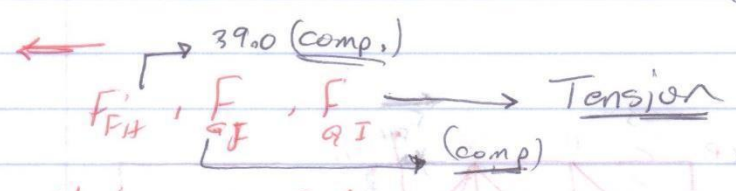 39.0 (comp.)
F_FH , F_GF , F_GI → Tension
(comp)